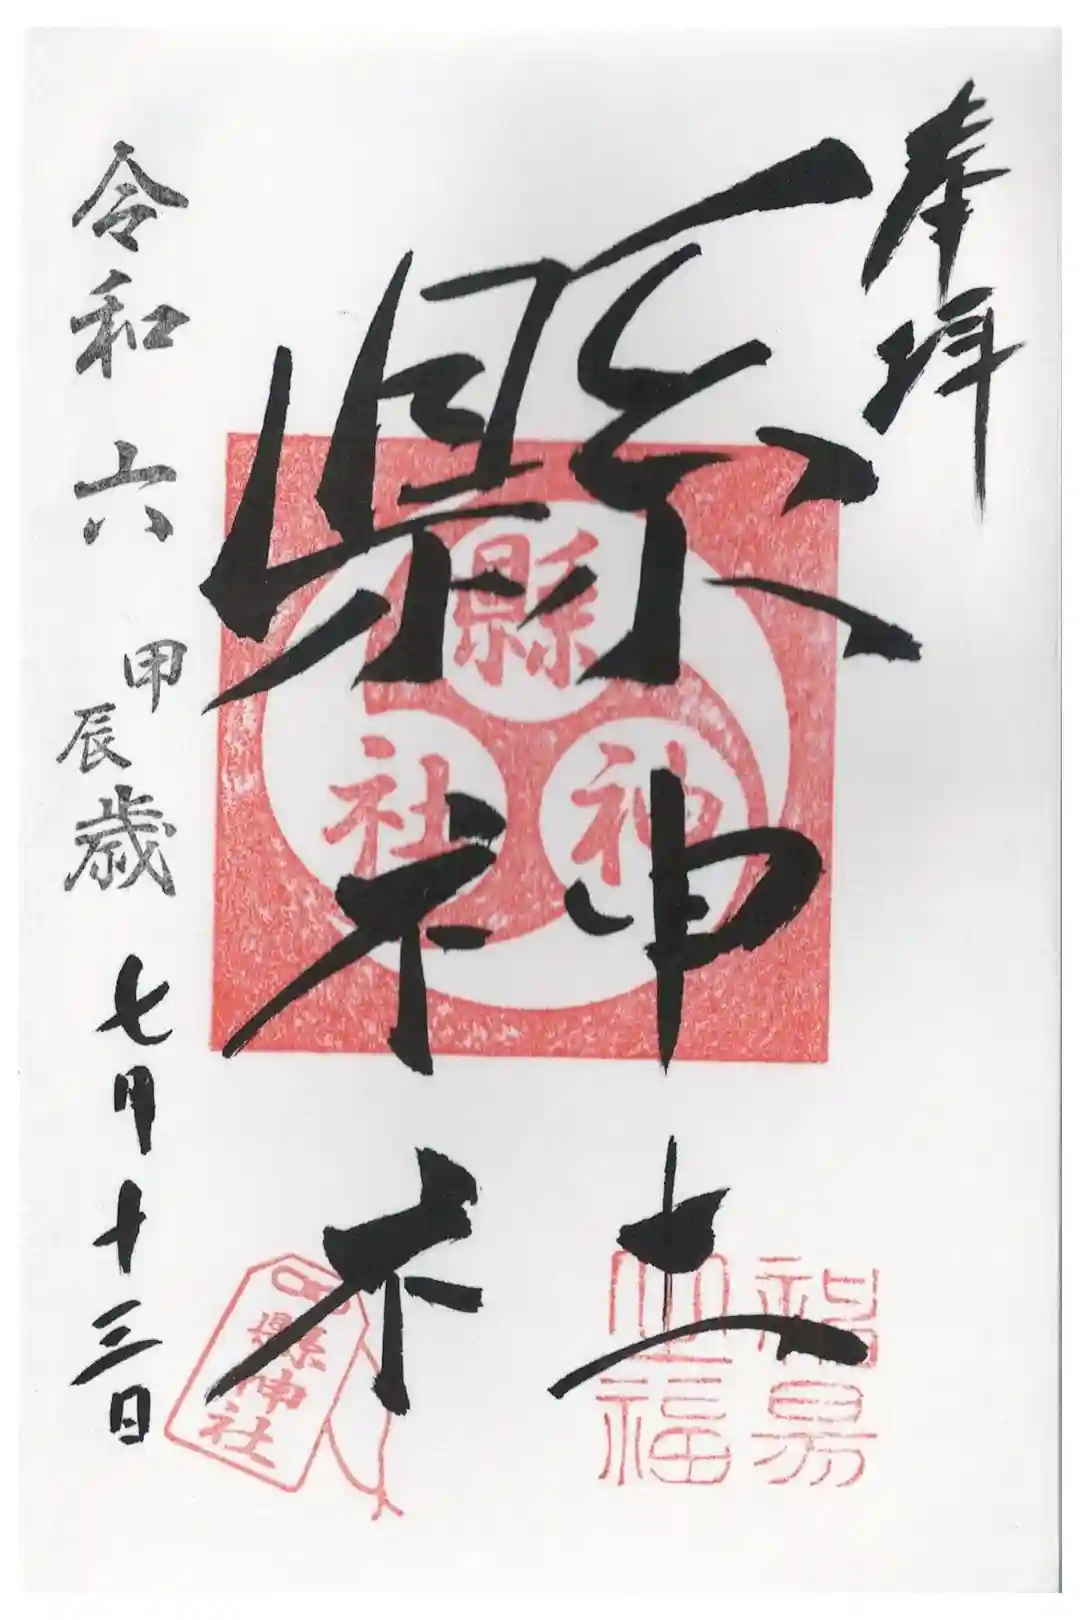 奉拝
縣神社
縣神社
縣神社
令和六甲辰歳七月十三日